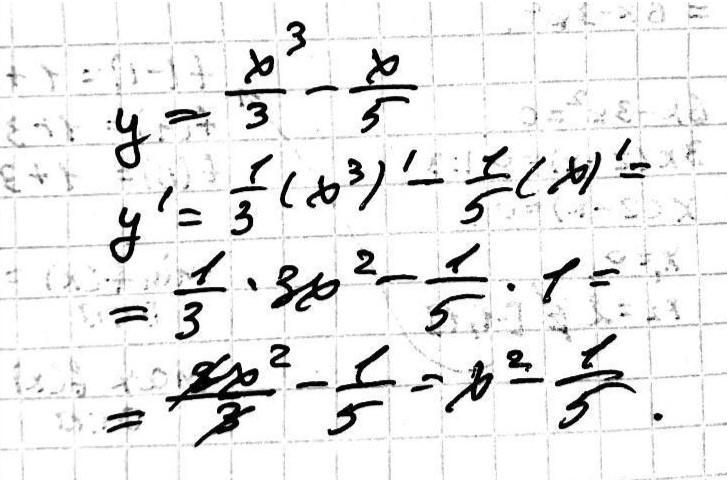 y = x³/3 − x/5
y' = 1/3 (x³)' − 1/5 (x)' =
= 1/3 · 3x² − 1/5 · 1 =
= 3x²/3 − 1/5 = x² − 1/5 .